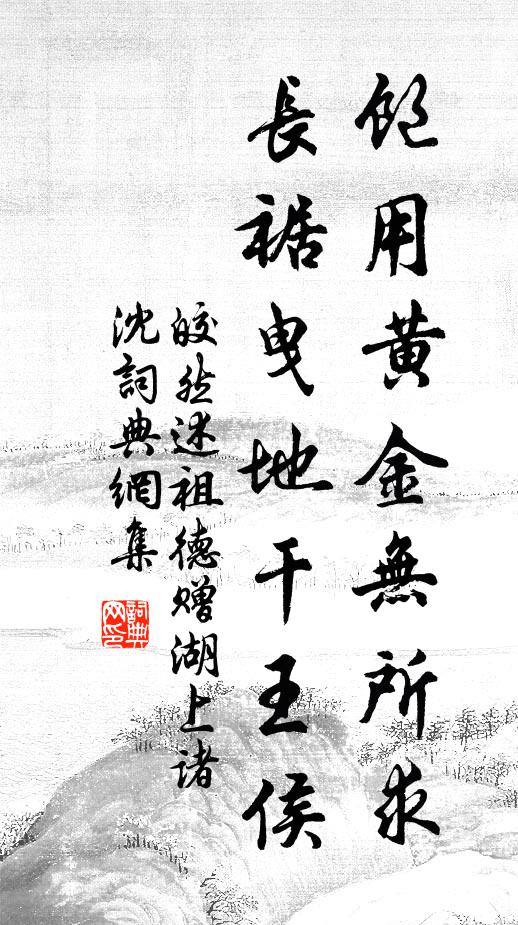 飽用黃金無所求
長裾曳地干王侯
皎然述祖德贈湖上諸
沈詞典網集
詞典
网印